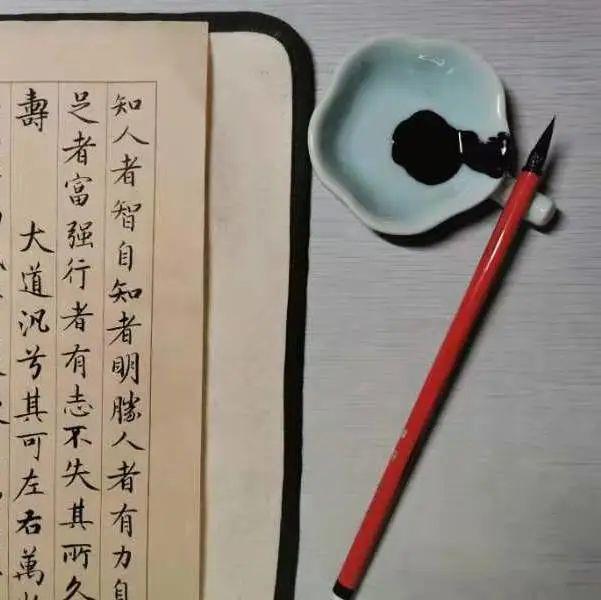 知人者智自知者明勝人者有力自
足者富强行者有志不失其所久
壽 大道汎兮其可左右萬